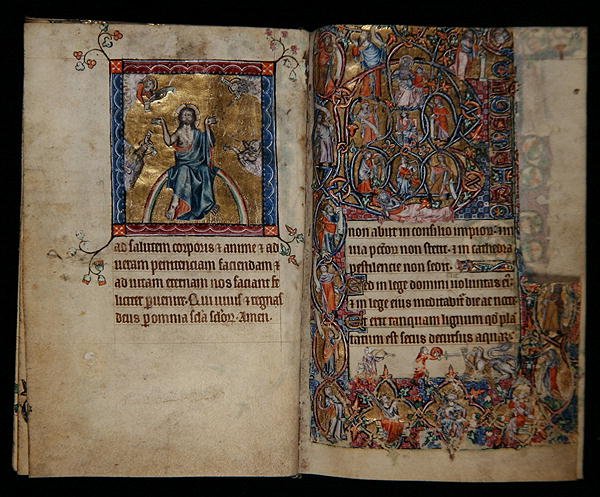 ad salutem corporis & anime & ad
ueram penitenciam faciendam &
ad uitam eternam nos faciant fe
liciter puenire. Qui uiuis & regnas
deus p omnia scła scłoꝝ. Amen.
non abiit in consilio impioꝝ & in
uia pctoꝝ non stetit & in cathedra
pestilencie non sedit.
Sed in lege domini uoluntas ei
& in lege eius meditabit die ac nocte.
Et erit tanquam lignum qd pla
tatum est secus decursus aquaꝝ